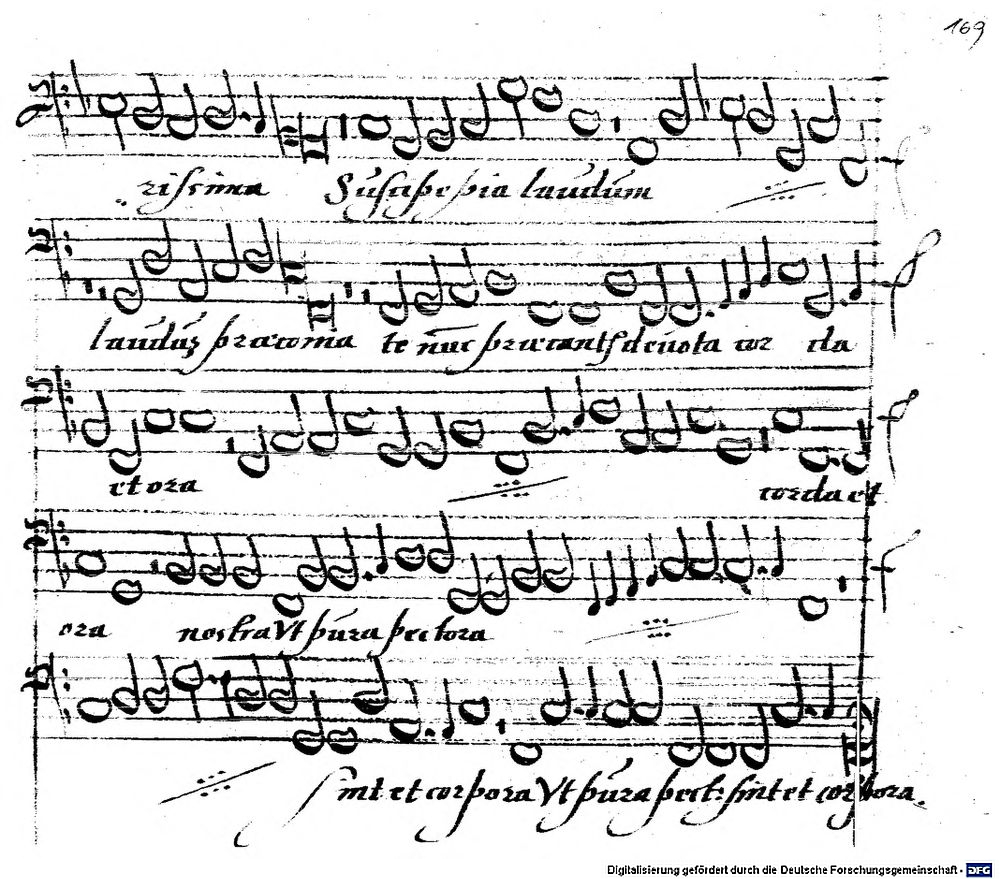 169
rissima Suscipe pia laudum
laudum præconia te nūc præcantes devota cor da
et ora corda et
ora nostra Vt pura pectora
sint et corpora Vt pura pect: sint et corpora.
Digitalisierung gefördert durch die Deutsche Forschungsgemeinschaft - DFG